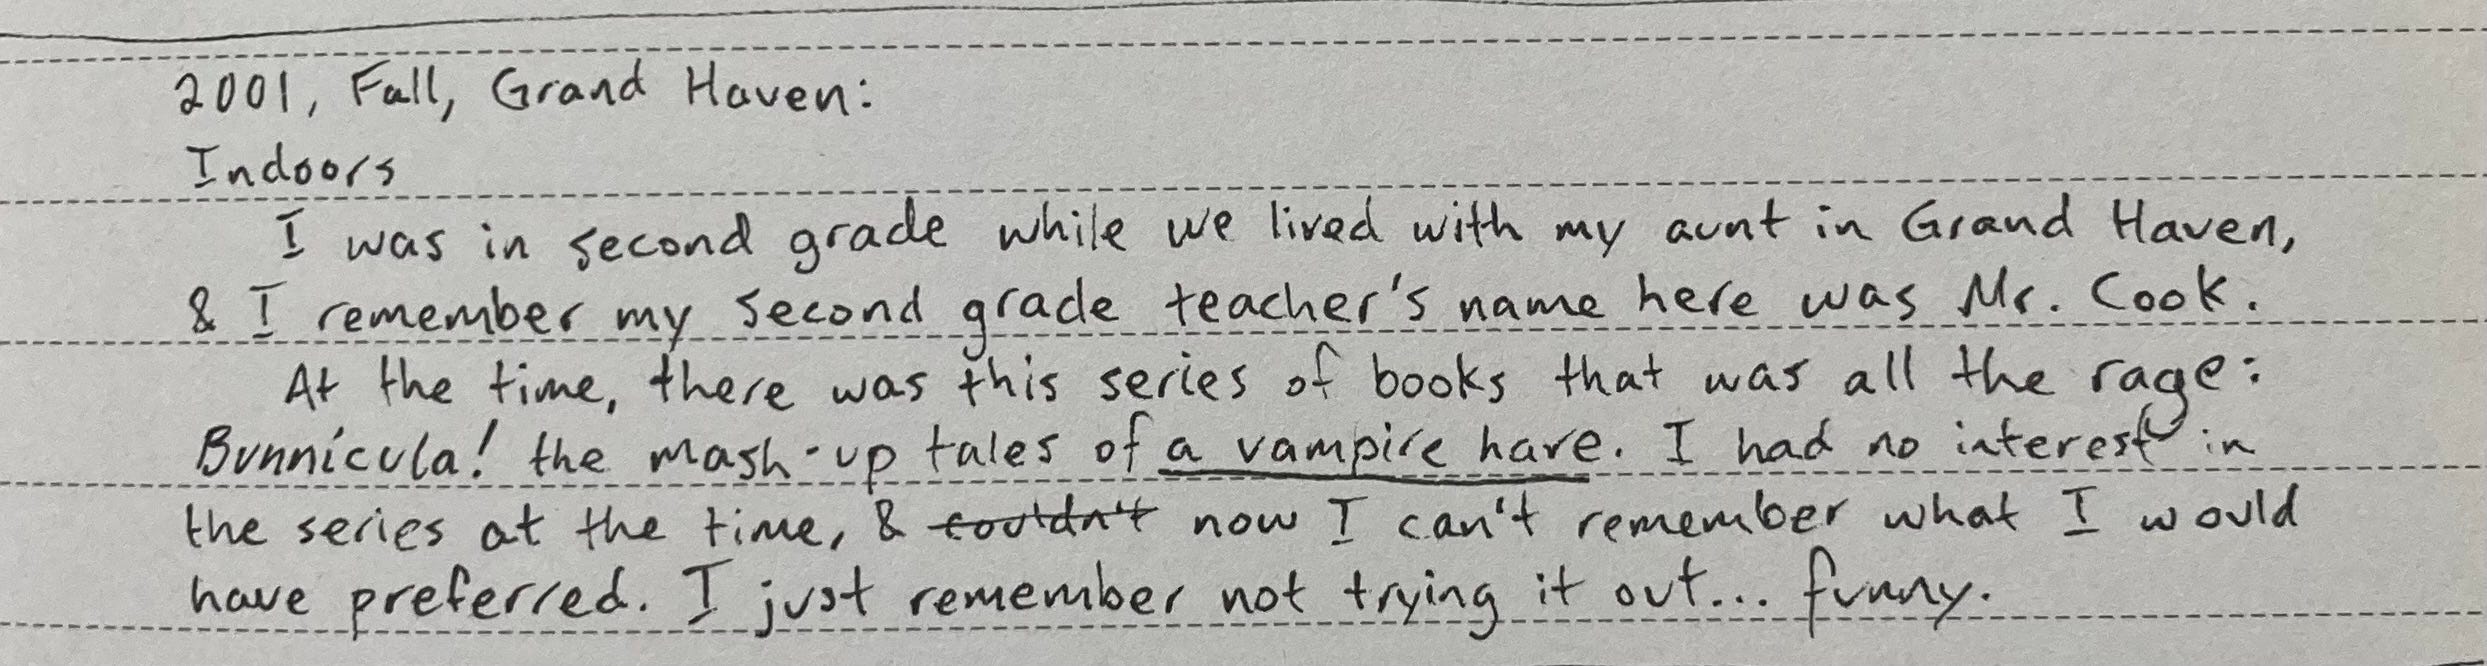 2001, Fall, Grand Haven:
Indoors
I was in second grade while we lived with my aunt in Grand Haven,
& I remember my second grade teacher's name here was Mr. Cook.
At the time, there was this series of books that was all the rage:
Bunnicula! the mash-up tales of a vampire hare. I had no interest in
the series at the time, & couldn't now I can't remember what I would
have preferred. I just remember not trying it out... funny.